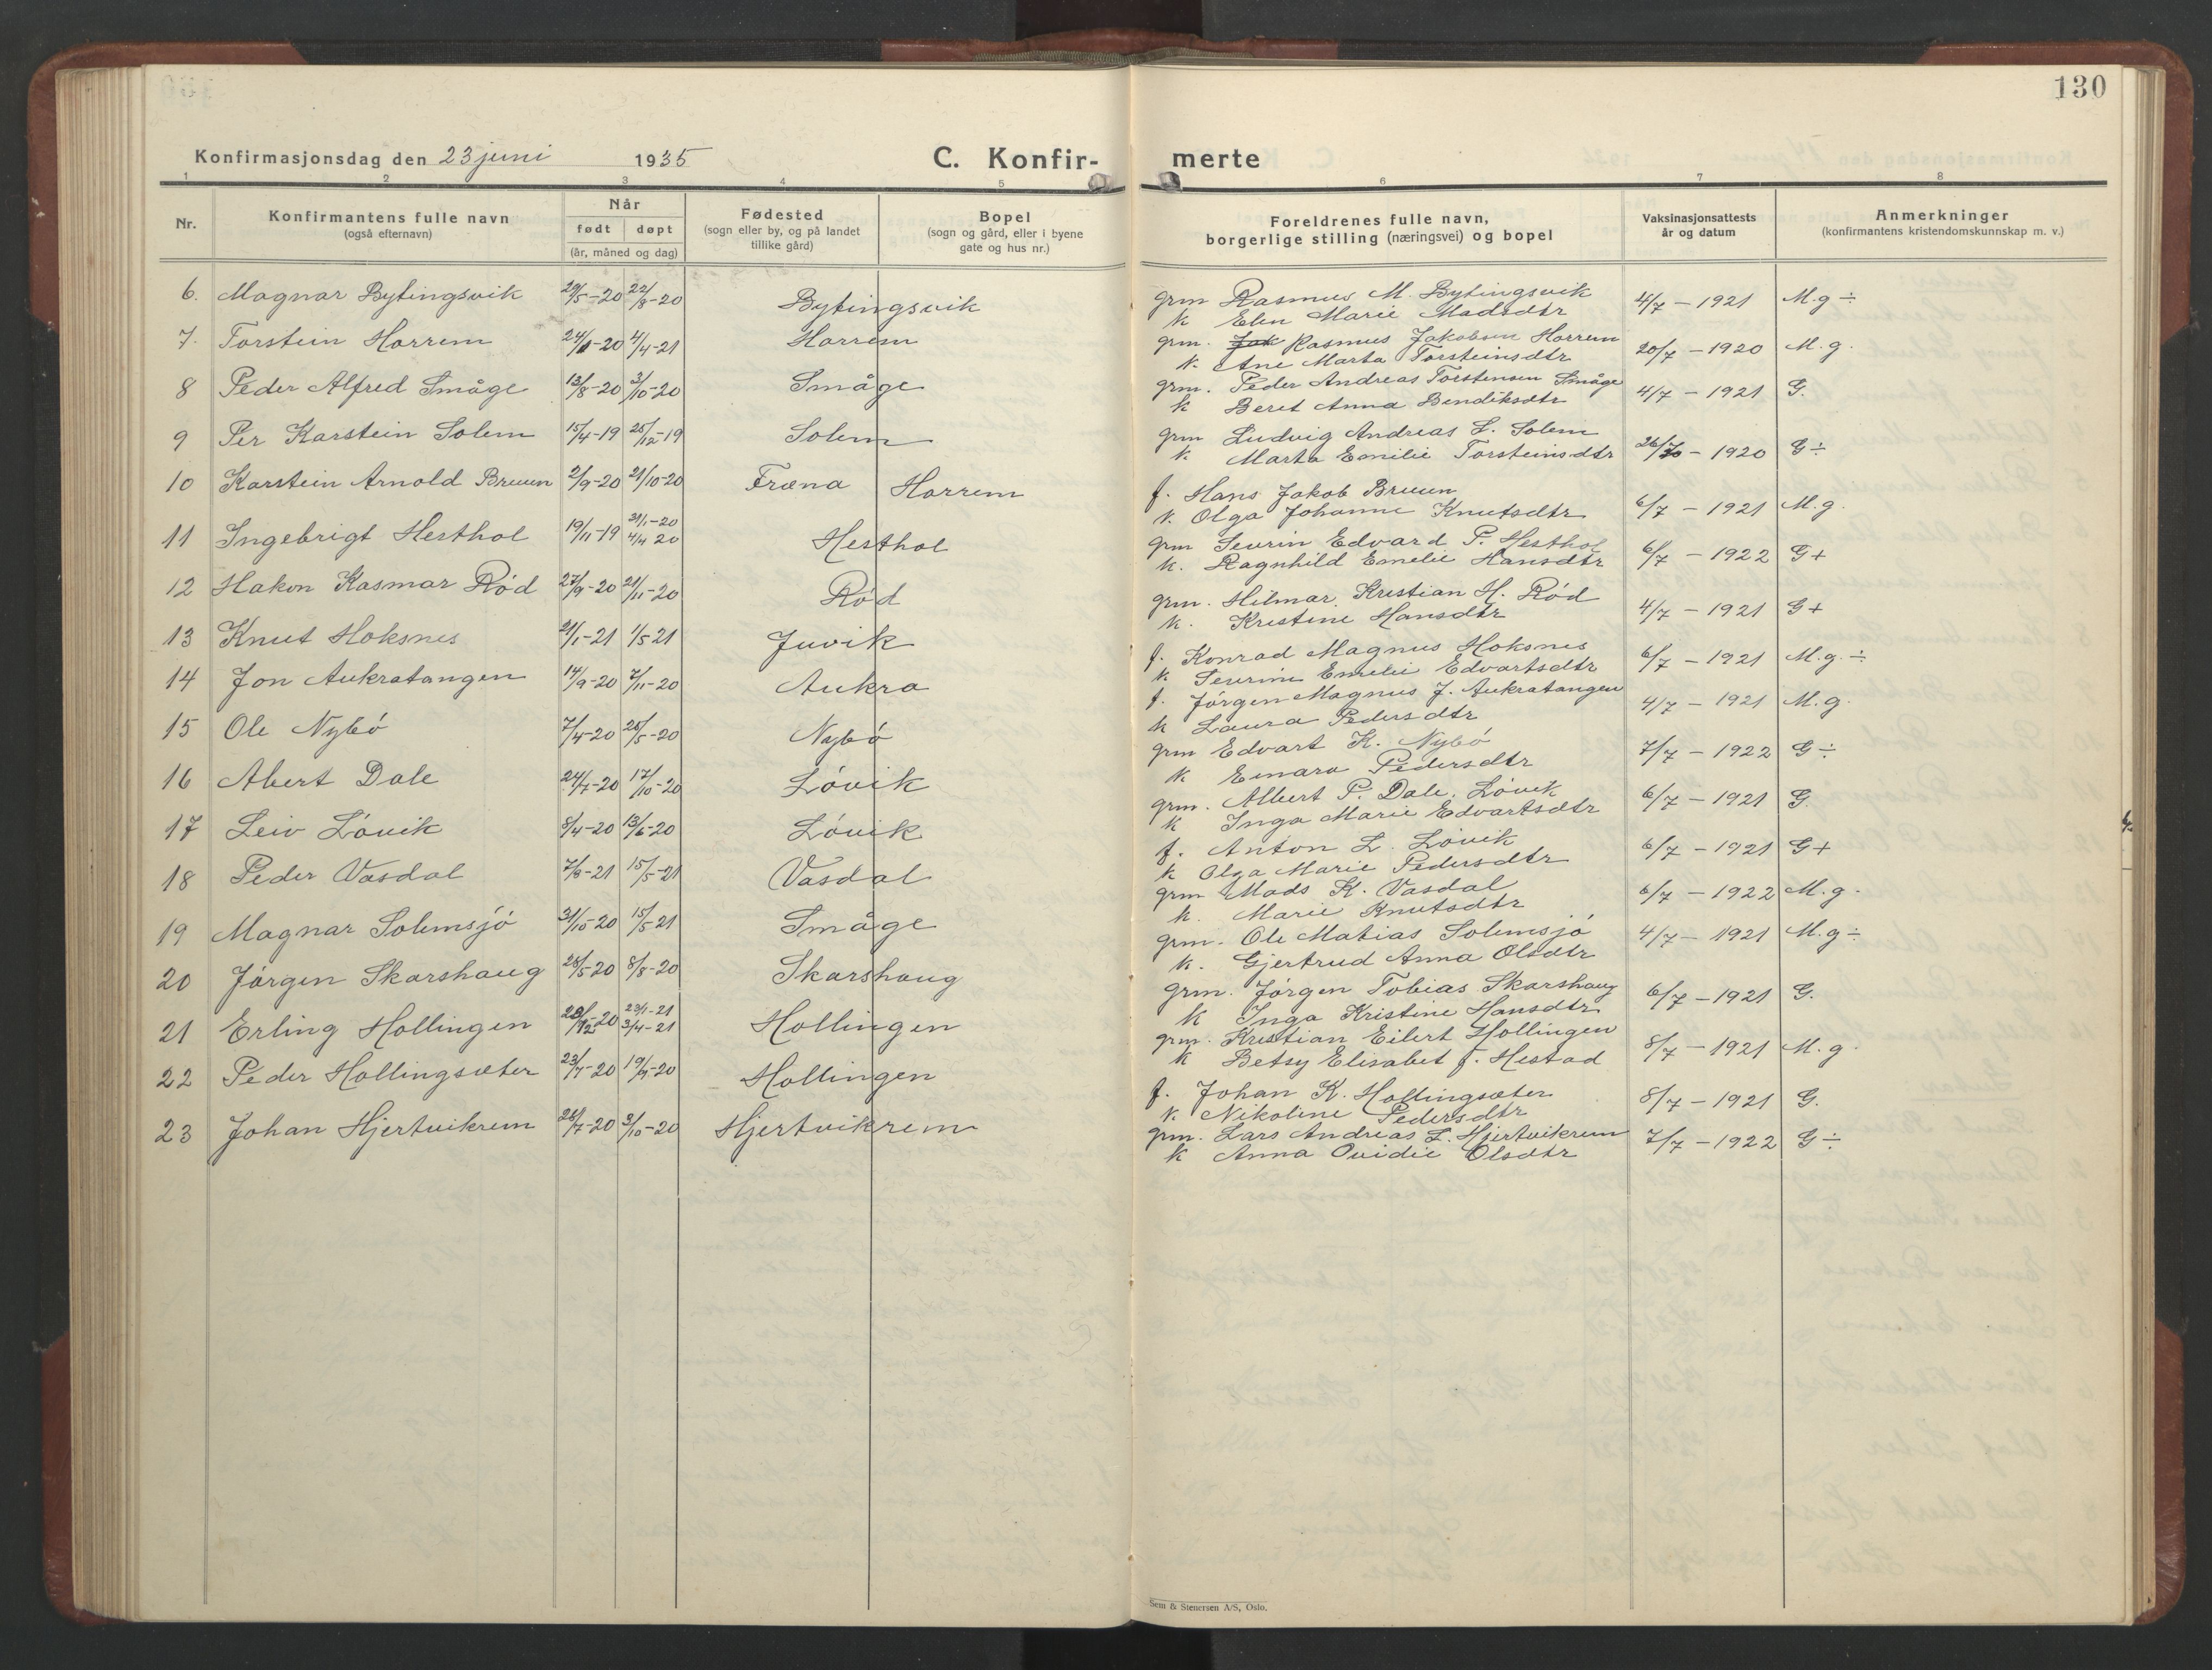 130
Konfirmasjonsdag den 23 juni 1935
C. Konfir-
merte
1 2 3 4 5 6 7 8
Nr. Konfirmantens fulle navn (også efternavn) Når født døpt (år, måned og dag) Fødested (sogn eller by, og på landet tillike gård) Bopel (sogn og gård, eller i byene gate og hus nr.) Foreldrenes fulle navn, borgerlige stilling (næringsvei) og bopel Vaksinasjonsattests år og datum Anmerkninger (konfirmantens kristendomskunnskap m. v.)
6. Magnar Bytingsvik 29/5-20 22/8-20 Bytingsvik grm Rasmus M. Bytingsvik 4/7 - 1921 M.g ÷
k Elen Marie Madsdtr
7. Torstein Harrem 4/4-21 Harrem grm. Jak Rasmus Jakobsen Harrem 20/7 - 1920 M.g.
k. Ane Marta Torsteinsdtr
8 Peder Alfred Småge 13/8-20 3/10-20 Småge grm. Peder Andreas Torstensen Småge 4/7 - 1921 G.
k Beret Anna Bendiksdtr
9 Per Karstein Solem 15/4-19 25/12-19 Solem grm Ludvig Andreas L. Solem - 1920 G÷
k. Marta Emilie Torsteinsdtr
10 Karstein Arnold Bruun 2/9-20 21/10-20 Fræna Harrem f. Hans Jakob Bruun 6/7 - 1921 M.g.
k. Olga Johanne Knutsdtr
11 Ingebrigt Hesthol 19/11-19 31/1-20 4/4 20 Hesthol grm Sevrin Edvard P. Hesthol 6/7 - 1922 G+
k. Ragnhild Emelie Hansdtr
12 Hakon Kasmar Rød 27/9-20 21/11-20 Rød grm. Hilmar Kristian H. Rød 4/7 - 1921 G+
k. Kristine Hansdtr
13 Knut Hoksnes 21/1-21 1/5 21 Juvik f. Konrad Magnus Hoksnes 6/7 - 1921 M.g. ÷
k Sevrine Emelie Edvartsdtr
14 Jon Aukratangen 14/9-20 7/11-20 Aukra f. Jørgen Magnus J. Aukratangen 4/7 - 1921 M.g.
k Laura Pedersdtr
15 Ole Nybø 7/4-20 25/5-20 Nybø grm Edvart K. Nybø 7/7 - 1922 G÷
k Emara Pedersdtr
16 Abert Dale 24/7-20 17/10-20 Løvik grm. Albert P. Dale, Løvik 6/7 - 1921 G.
k Inga Marie Edvartsdtr
17 Leiv Løvik 8/4-20 13/6-20 Løvik f. Anton L. Løvik 6/7 - 1921 G+
k Olga Marie Pedersdtr
18 Peder Vasdal 15/5-21 Vasdal grm Mads K. Vasdal 6/7 - 1922 M.g.
k. Marie Knutsdtr
19 Magnar Solemsjø 31/10-20 15/5-21 Småge grm. Ole Matias Solemsjø 4/7 - 1921 M.g÷
k. Gjertrud Anna Olsdtr
20 Jørgen Skarshaug 28/5-20 8/8-20 Skarshaug grm. Jørgen Tobias Skarshaug 6/7 - 1921 G.
k Inga Kristine Hansdtr
21 Erling Hollingen 23/1-21 3/4-21 Hollingen grm. Kristian Eilert Hollingen 8/7 - 1921 M.g.
k Betsy Elisabet f. Hestad
22 Peder Hollingsæter 23/7-20 19/9-20 Hollingen f. Johan K. Hollingsæter 8/7 - 1921 G.
k. Nikoline Pedersdtr
23 Johan Hjertvikrem 28/7-20 3/10-20 Hjertvikrem grm. Lars Andreas L. Hjertvikrem 7/7 - 1922 G÷
k Anna Ovidie Olsdtr
Sem & Stenersen A/S, Oslo.